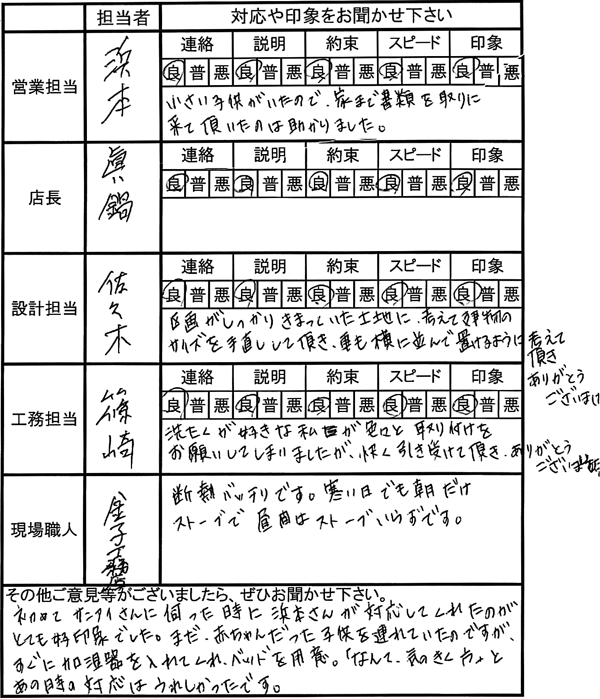 担当者 対応や印象をお聞かせ下さい
営業担当 浜本
連絡 説明 約束 スピード 印象
良 普 悪 良 普 悪 良 普 悪 良 普 悪 良 普 悪
小さい子供がいたので、家まで書類を取りに
来て頂いたのは助かりました。
店長 眞鍋
連絡 説明 約束 スピード 印象
良 普 悪 良 普 悪 良 普 悪 良 普 悪 良 普 悪
設計担当 佐々木
連絡 説明 約束 スピード 印象
良 普 悪 良 普 悪 良 普 悪 良 普 悪 良 普 悪
区画がしっかりきまっていた土地に、考えて建物の
サイズを手直しして頂き、車も横に並んで置けるように考えて
頂き
ありがとう
ございました
工務担当 篠崎
連絡 説明 約束 スピード 印象
良 普 悪 良 普 悪 良 普 悪 良 普 悪 良 普 悪
洗たくが好きな私 が 色々と取り付けを
お願いしてしまいましたが、快く引き受けて頂き、ありがとう
ございました
現場職人 金子工務
断熱バッチリです。寒い日でも朝だけ
ストーブで昼間はストーブいらずです。
その他ご意見等がございましたら、ぜひお聞かせ下さい。
初めてサンアイさんに伺った時に浜本さんが対応してくれたのが
とても好印象でした。まだ、赤ちゃんだった子供を連れていたのですが、
すぐに加湿器を入れてくれ、ベッドを用意。「なんて、気のきく方」と
あの時の対応はうれしかったです。